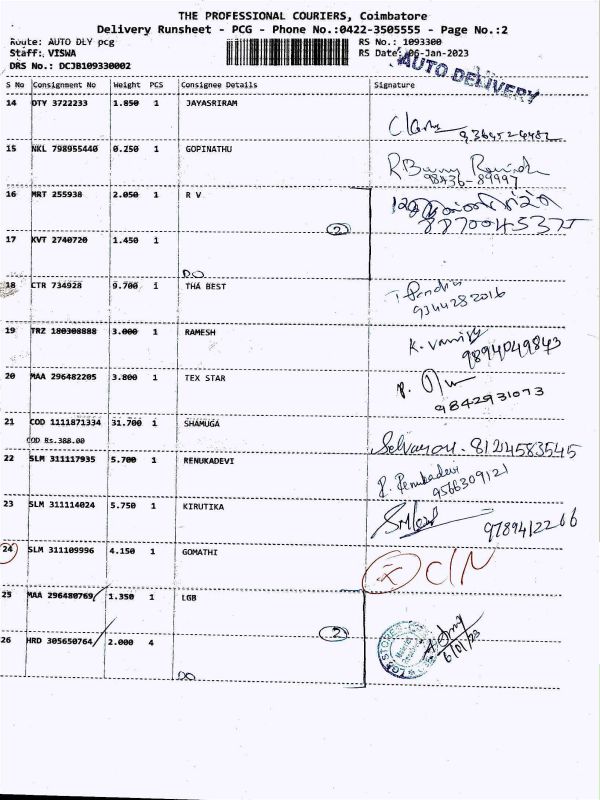 THE PROFESSIONAL COURIERS, Coimbatore
Delivery Runsheet - PCG - Phone No.:0422-3505555 - Page No.:2
Route: AUTO DLY pcg RS No.: 1093300
Staff: VISWA RS Date: 06-Jan-2023
DRS No.: DCJB109330002
AUTO DELIVERY
S No Consignment No Weight PCS Consignee Details Signature
14 DTY 3722233 1.850 1 JAYASRIRAM
9364524482
15 NKL 798955440 0.250 1 GOPINATHU
98436-89997
16 MRT 255938 2.050 1 R V
2
8870045375
17 KVT 2740720 1.450 1
DO
18 CTR 734928 9.700 1 THA BEST
9344282016
19 TRZ 180308888 3.000 1 RAMESH
9894049843
20 MAA 296482205 3.800 1 TEX STAR
9842931073
21 COD 1111871334 31.700 1 SHAMUGA
COD Rs.388.00
8124583545
22 SLM 311117935 5.700 1 RENUKADEVI
P. Renukadevi
9566309121
23 SLM 311114024 5.750 1 KIRUTIKA
9789412266
24 SLM 311109996 4.150 1 GOMATHI
C/N
25 MAA 296480769 1.350 1 LGB
2
26 HRD 305650764 2.000 4
6/01/23
DO